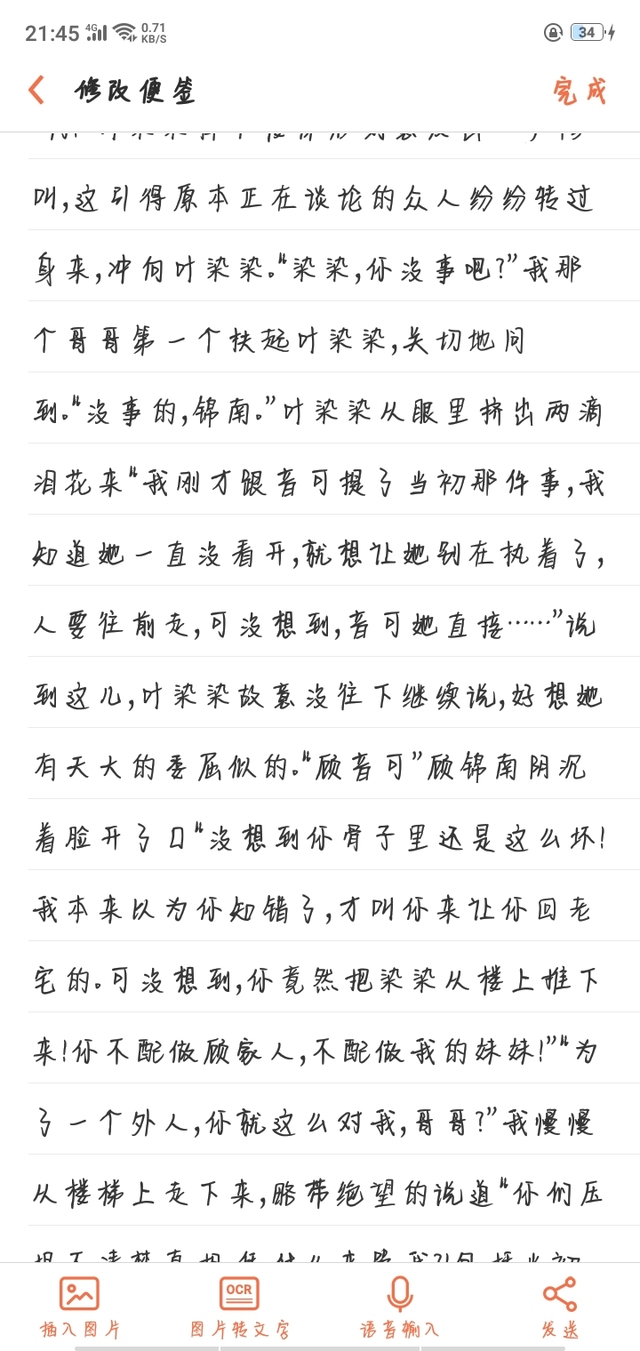 21:45 4G 0.71 KB/S 34
修改便签 完成
叫,这引得原本正在谈论的众人纷纷转过
身来,冲向叶染染。“染染,你没事吧?”我那
个哥哥第一个扶起叶染染,关切地问
到。“没事的,锦南。”叶染染从眼里挤出两滴
泪花来“我刚才跟音可提了当初那件事,我
知道她一直没看开,就想让她别在执着了,
人要往前走,可没想到,音可她直接……”说
到这儿,叶染染故意没往下继续说,好想她
有天大的委屈似的。“顾音可”顾锦南阴沉
着脸开了口“没想到你骨子里还是这么坏!
我本来以为你知错了,才叫你来让你回老
宅的。可没想到,你竟然把染染从楼上推下
来!你不配做顾家人,不配做我的妹妹!”“为
了一个外人,你就这么对我,哥哥?”我慢慢
从楼梯上走下来,略带绝望的说道“你们压
插入图片 OCR 图片转文字 语音输入 发送